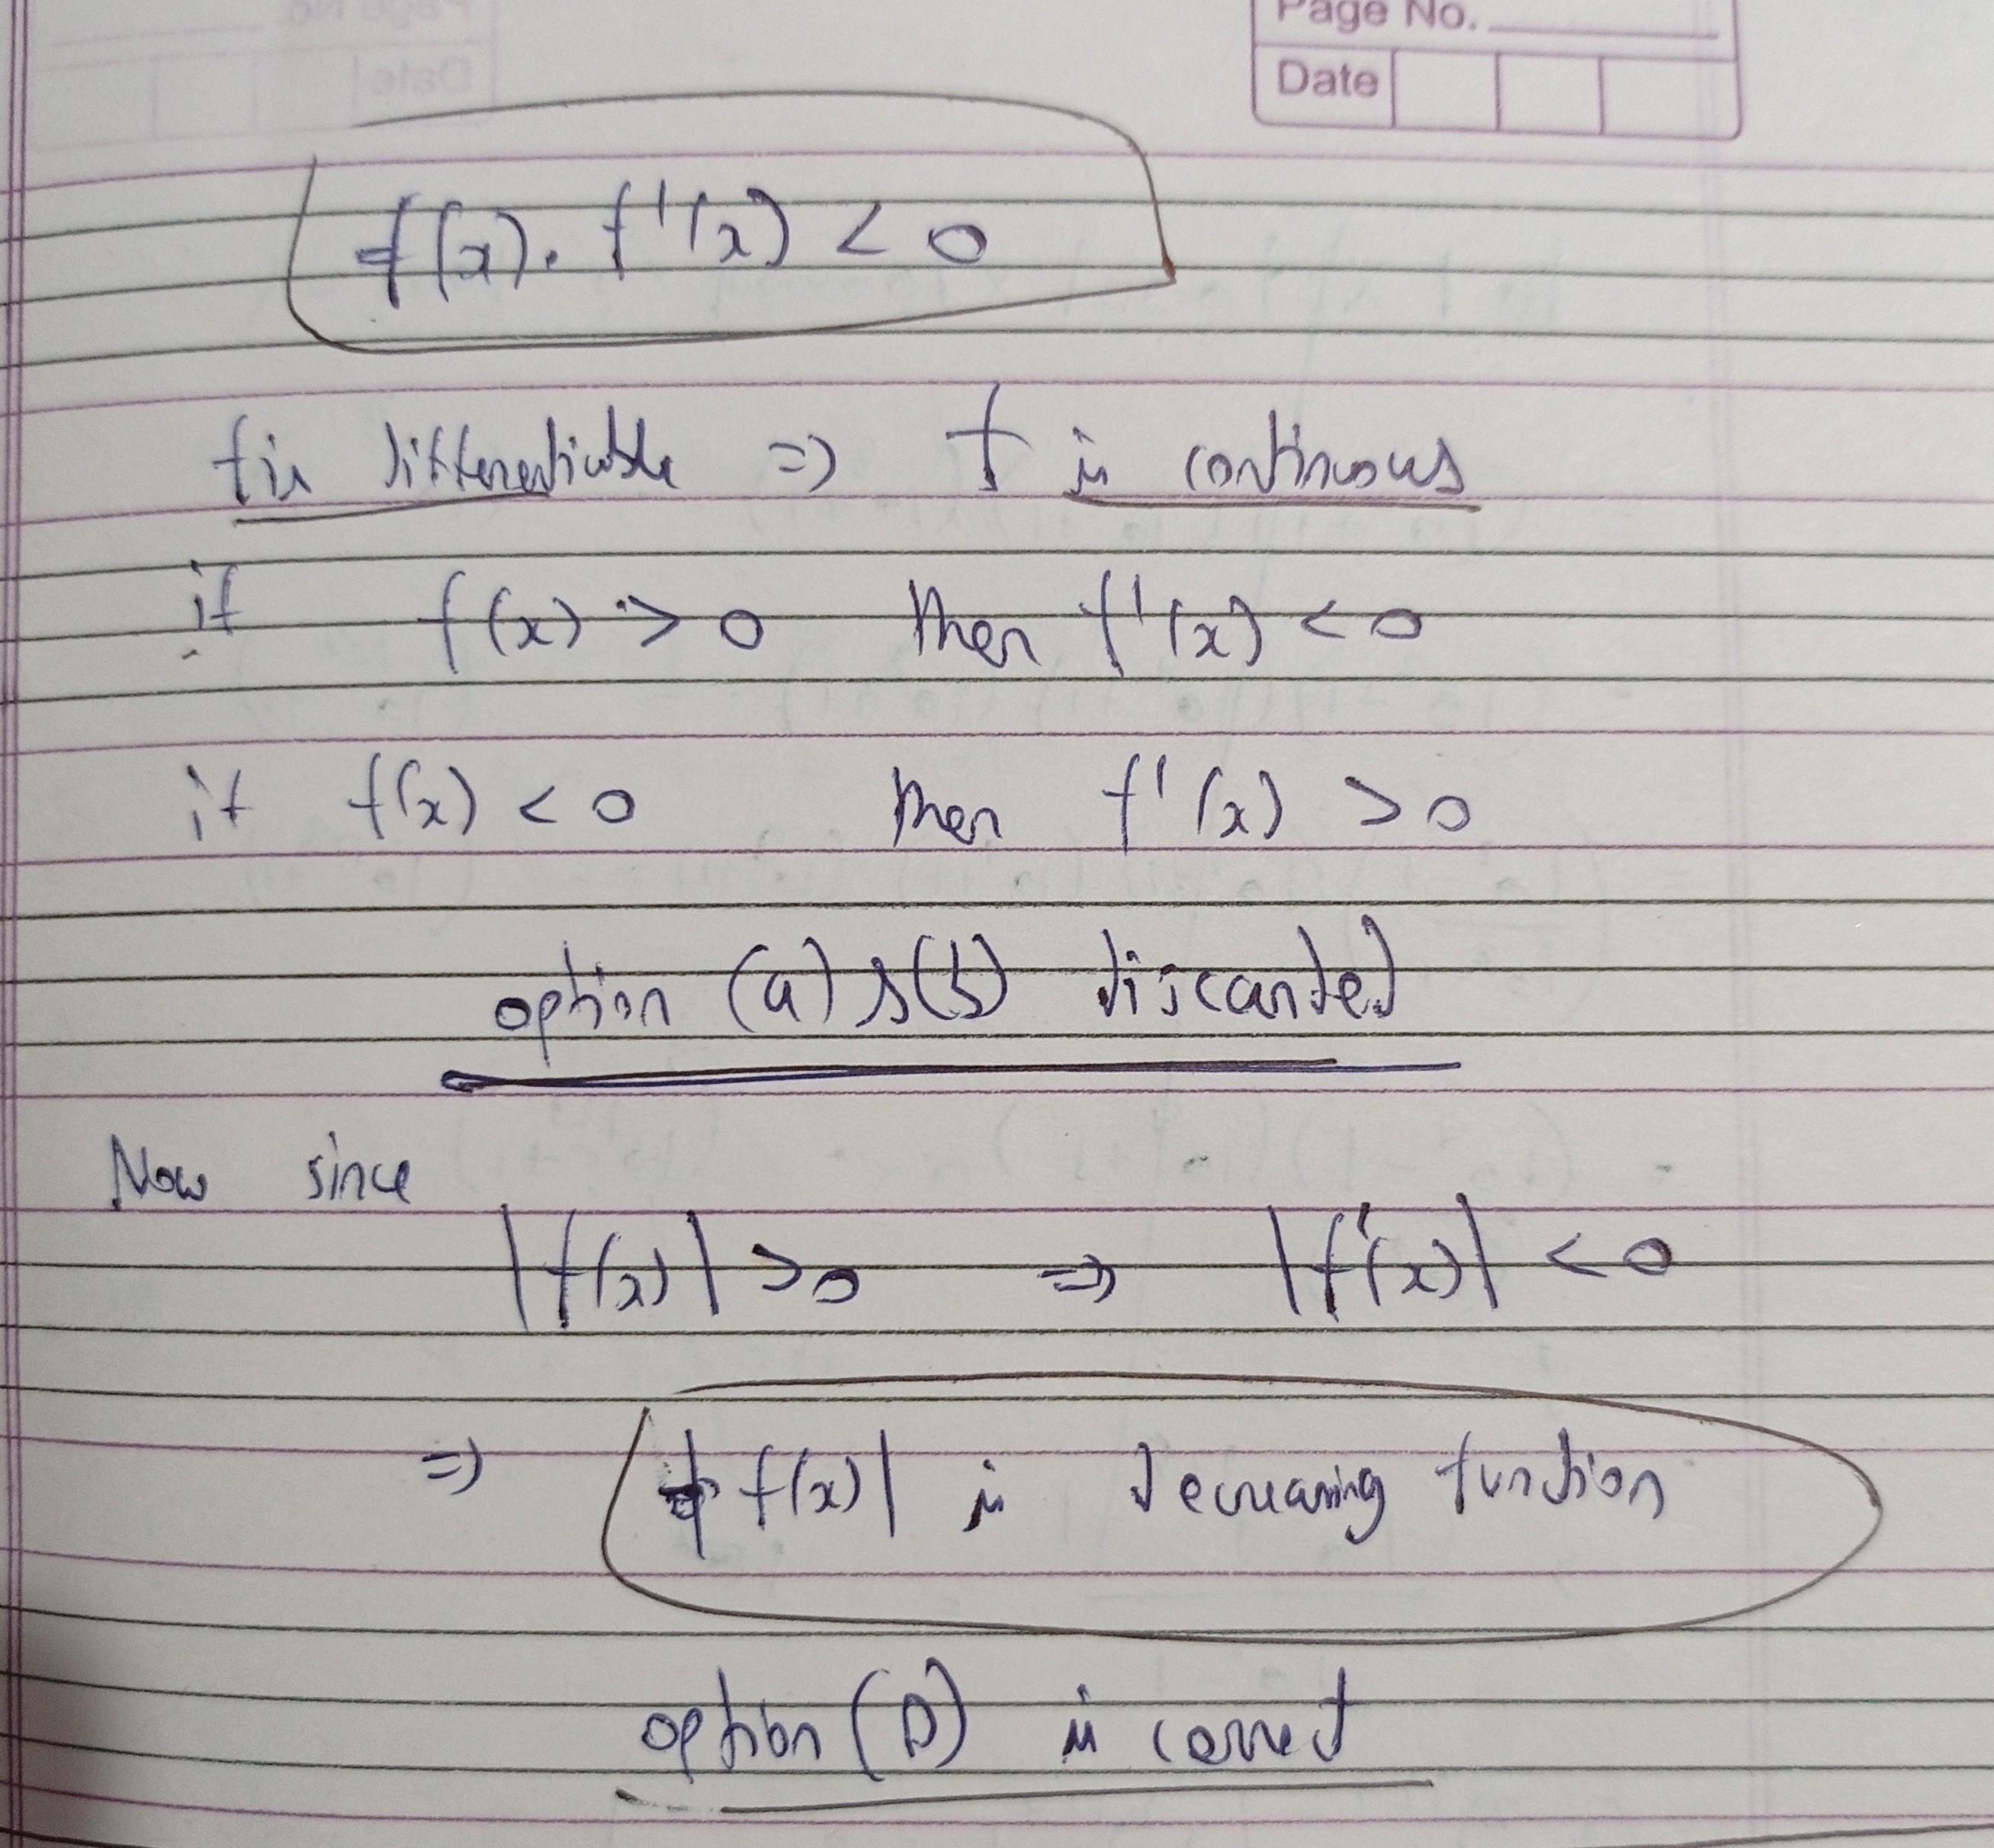 Page No.
Date
f(x). f'(x) < 0
f is differentiable => f is continuous
if f(x) > 0 then f'(x) < 0
if f(x) < 0 then f'(x) > 0
option (a) & (b) discarded
Now since
|f(x)| > 0 => |f'(x)| < 0
=> |f(x)| is decreasing function
option (D) is correct